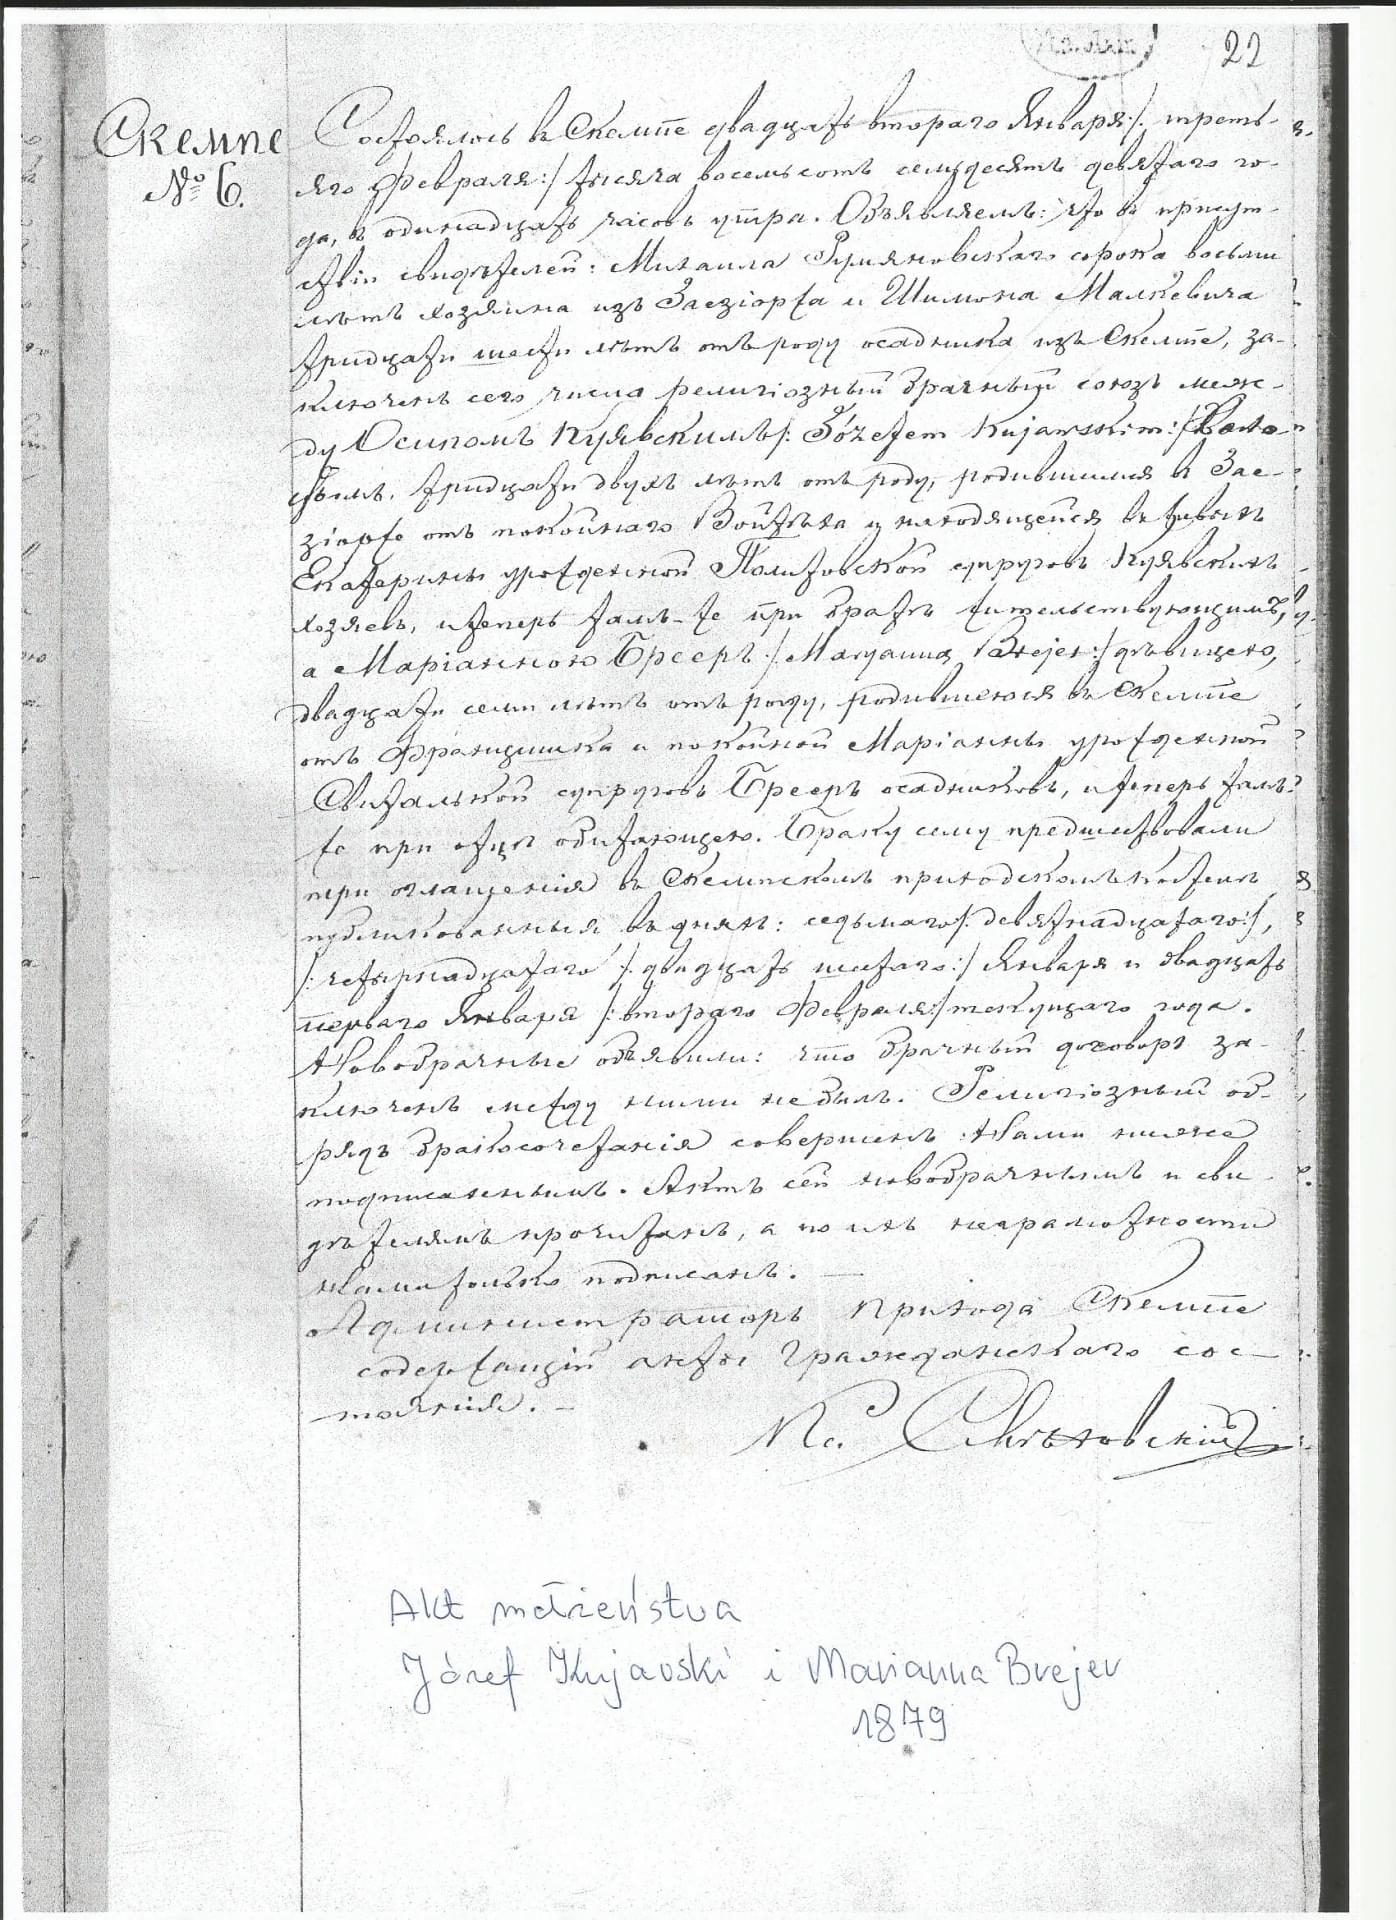 22
Скемпе
№ 6.
Состоялось въ Скемпе двадцать втораго Января /: треть-
яго Февраля :/ тысяча восемьсотъ семьдесятъ девятаго го-
да, въ одинадцать часовъ утра. Объявляемъ: что въ присут-
ствіи свидѣтелей: Михаила сорока восьми
лѣтъ хозяина изъ Заезіорżа и Шимона Малкевича
тридцати шести лѣтъ отъ роду осадника изъ Скемпе, за-
ключенъ сего числа религіозный брачный союзъ меж-
ду Осипомъ Куявскимъ /: Józefem Kujawskim :/ холо-
стымъ, тридцати двухъ лѣтъ отъ роду, родившимся въ Зае-
зіорże отъ покойнаго Войтѣха и находящейся въ живыхъ
Екатерины урожденной супруговъ Куявскихъ
хозяевъ, и теперь тамъ-же при братѣ жительствующимъ,
а Маріанною Брееръ /: Maryanną Brejer :/ дѣвицею,
двадцати семи лѣтъ отъ роду, родившеюся въ Скемпе
отъ Францишка и покойной Маріанны урожденной
Свитальской супруговъ Брееръ осадниковъ, и теперь тамъ-
же при отцѣ обитающею. Браку сему предшествовали
три оглашенія въ Скемпскомъ приходскомъ костелѣ
публикованныя, въ дняхъ: седьмаго /: девятнадцатаго :/,
/: четырнадцатаго /: двадцать шестаго :/ Января и двадцать
перваго Января /: втораго Февраля :/ текущаго года.
Новобрачные объявили: что брачный договоръ за-
ключенъ между ними небылъ. Религіозный об-
рядъ бракосочетанія совершенъ Нами ниже
подписаннымъ. Актъ сей новобрачнымъ и сви-
дѣтелямъ прочитанъ, а по ихъ неграмотности
Нами только подписанъ. —
Администраторъ Прихода Скемпе
содержащій акты гражданскаго сос-
тоянія. —
Кс.
Akt małżeństwa
Józef Kujawski i Marianna Brejer
1879